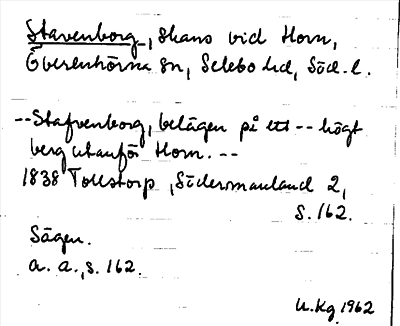 Stavenborg, skans vid Horn,
Överenhörna sn, Selebo hd, Söd. l.
-- Stafvenborg, belägen på ett -- högt
berg utanför Horn. --
1838 Tollstorp, Södermanland 2,
s. 162.
Sägen.
a. a., s. 162.
U. Kg 1962